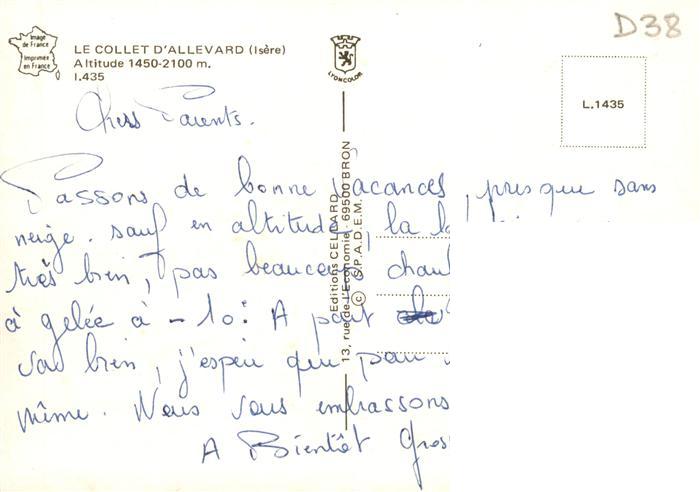 D38
Image
de France
Imprimée
en France
LE COLLET D'ALLEVARD (Isère)
Altitude 1450-2100 m.
I.435
LYONCOLOR
L.1435
Editions CELLARD
13, rue de l'Economie - 69500 BRON
© S.P.A.D.E.M.
Chers Parents.
Passons de bonne vacances, presque sans
neige. sauf en altitude, la
très bien, pas beaucoup
à gelée à - 10°. A part
bien, j'espère que pour
même. Nous vous embrassons
A Bientôt Gros